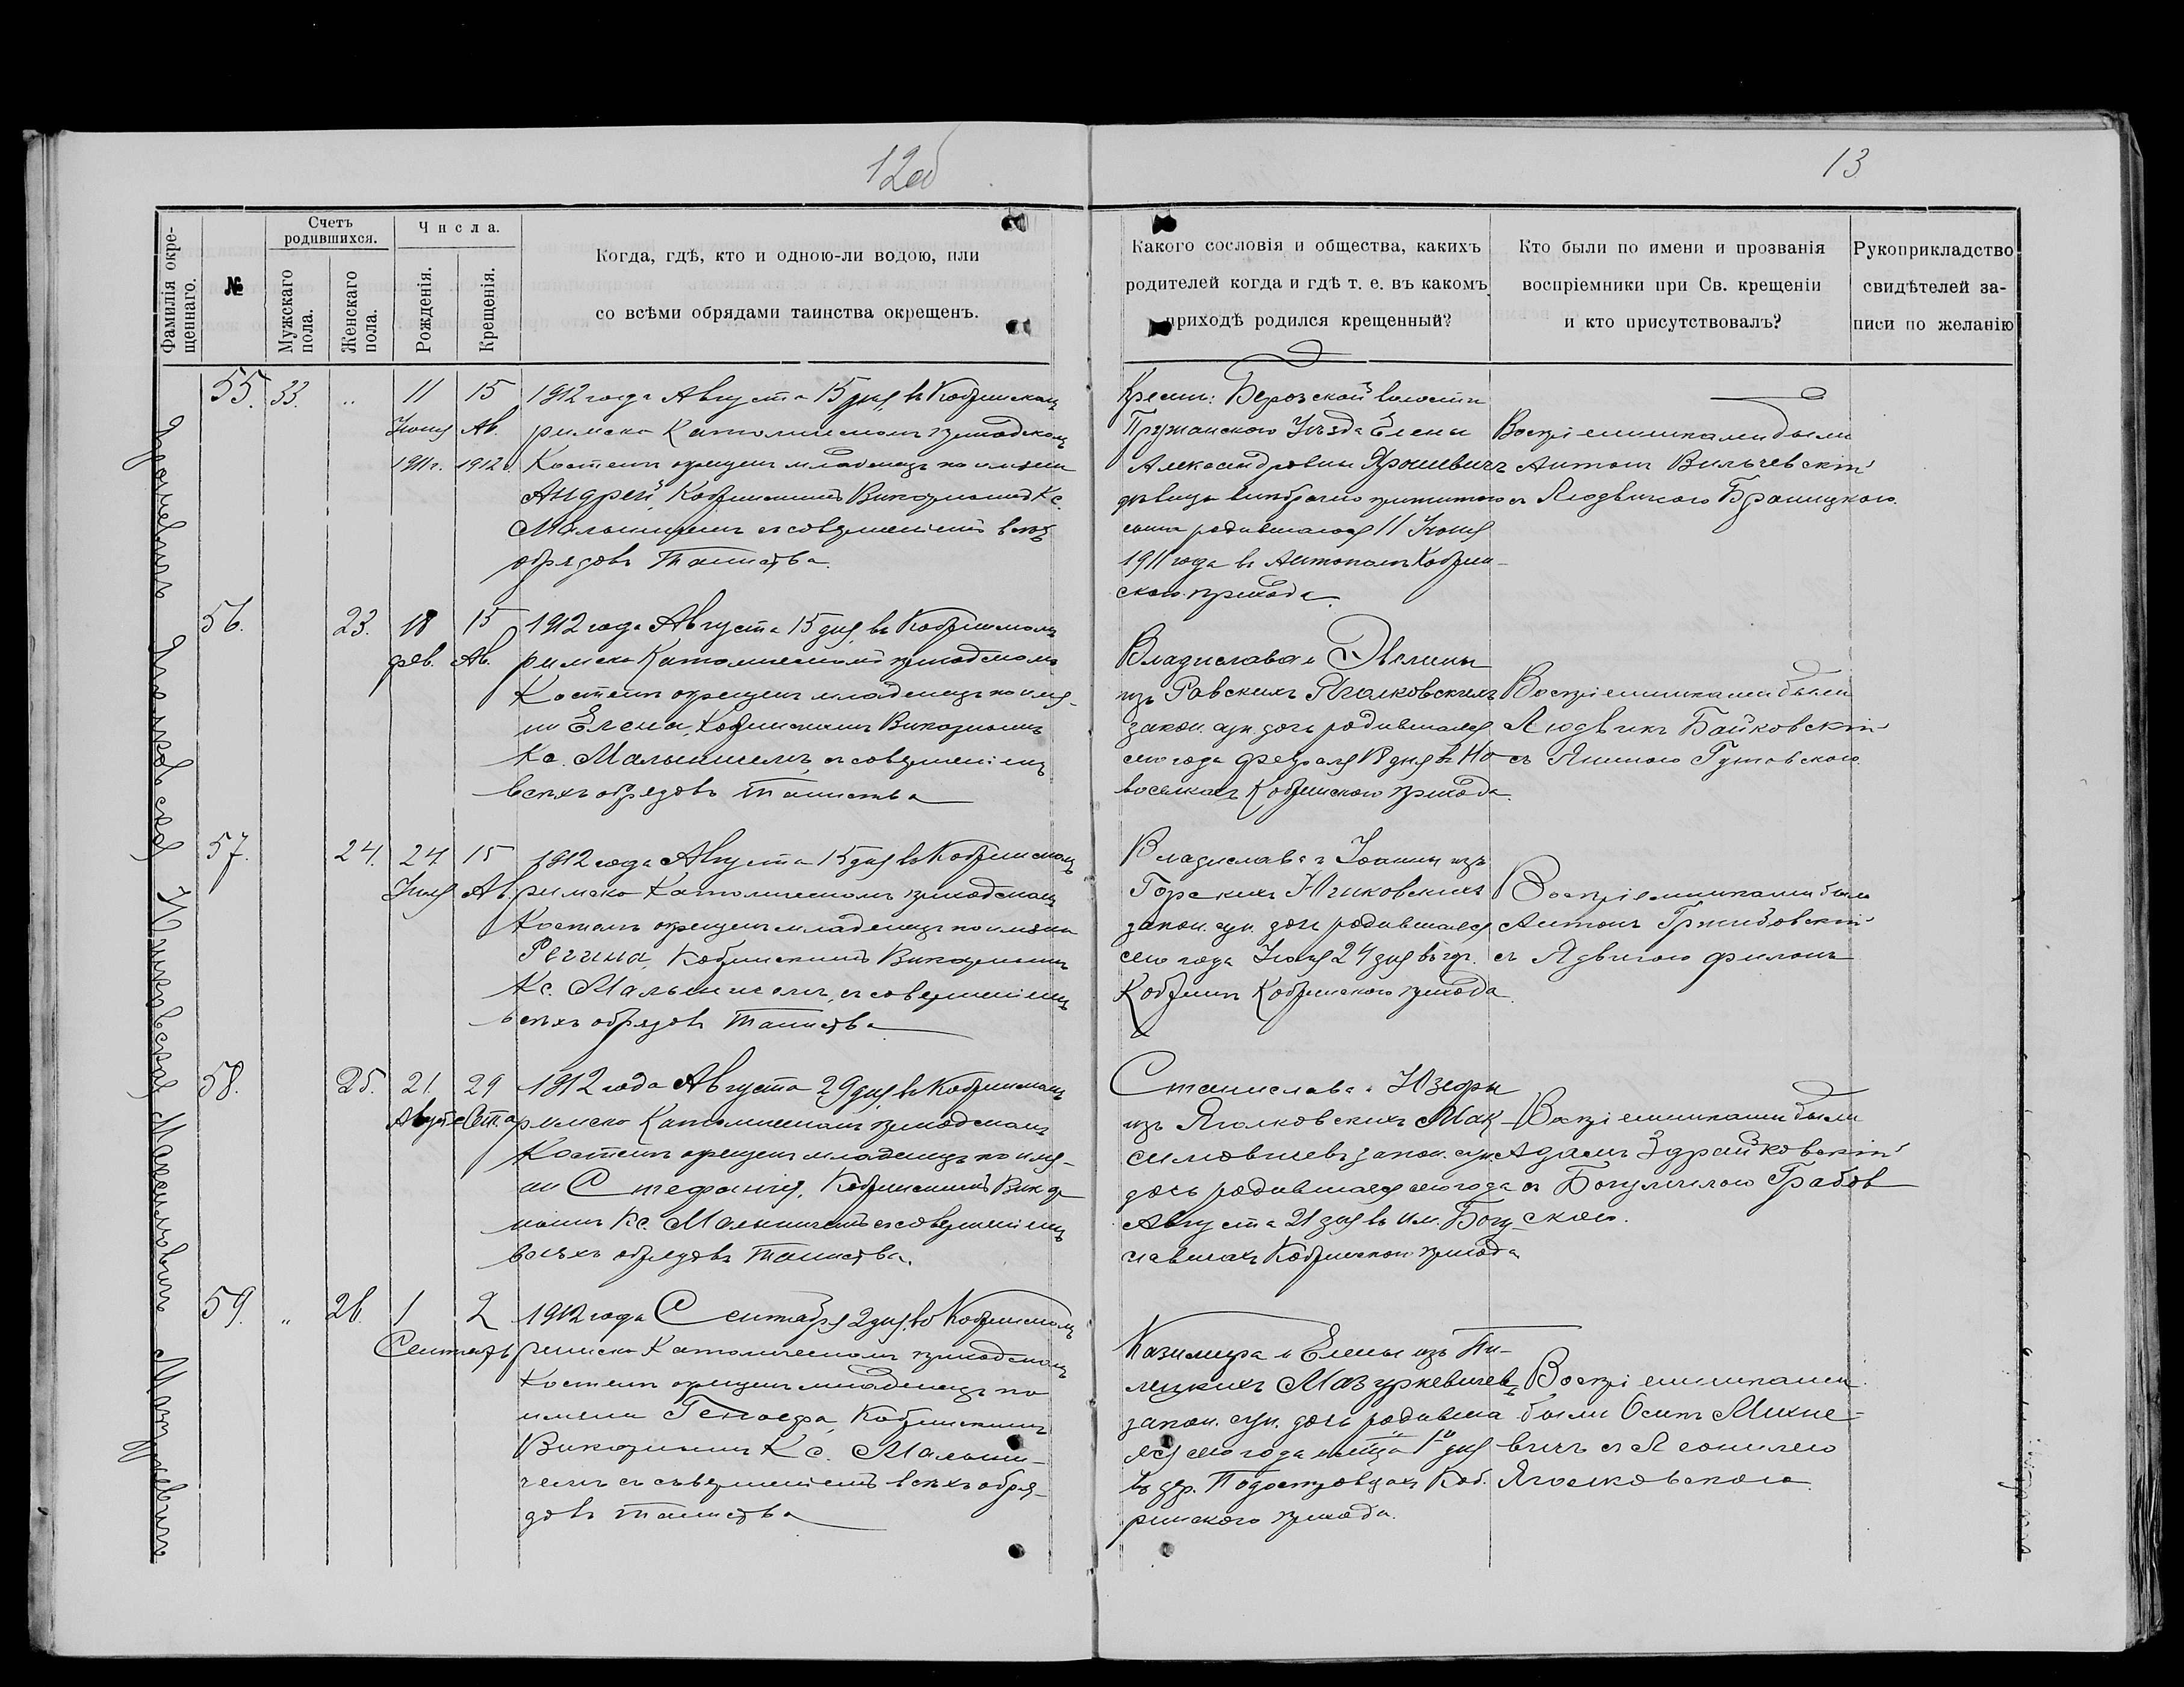 12об
13
Фамилія окре-
щеннаго.
№
Счетъ
родившихся.
Мужскаго
пола.
Женскаго
пола.
Числа.
Рожденія.
Крещенія.
Когда, гдѣ, кто и одною-ли водою, или
со всѣми обрядами таинства окрещенъ.
Какого сословія и общества, какихъ
родителей когда и гдѣ т. е. въ какомъ
приходѣ родился крещенный?
Кто были по имени и прозванія
воспріемники при Св. крещеніи
и кто присутствовалъ?
Рукоприкладство
свидѣтелей за-
писи по желанію
55. 33. „ 11 15
Іюня Ав.
1911 г. 1912 г.
1912 года Августа 15 дня, въ Кобринскомъ
римско Католическомъ приходскомъ
Костелѣ окрещенъ младенецъ по имени
Андрей, Кобринскимъ Викарнымъ Кс.
съ совершеніемъ всѣхъ
обрядовъ Таинства.
Крест: Березской волости
Пружанского Уѣзда Елены
Александровны Ярошевичъ
дѣвицы внѣбрачно прижитого
сына родившагося 11 Іюня
1911 года въ Кобрин-
скаго прихода.
Воспріемниками были
Антонъ Вильчевскій
съ Людвикою Браницкою.
56. 23. 18 15
фев. Ав.
1912 года Августа 15 дня, въ Кобринскомъ
римско Католическомъ приходскомъ
Костелѣ окрещенъ младенецъ по име-
ни Елена, Кобринскимъ Викарнымъ
Кс. съ совершеніемъ
всѣхъ обрядовъ Таинства
Владислава и Эвелины
изъ Равскихъ Яголковскихъ
закон. суп. дочь родившаяся
сего года февраля 18 дня въ Но-
воселкахъ Кобринского прихода.
Воспріемниками были
Людвикъ Байковскій
съ Яниною Гутовскою.
57. 24. 24 15
Ав.
1912 года Августа 15 дня въ Кобринскомъ
римско Католическомъ приходскомъ
Костелѣ окрещенъ младенецъ по имени
Регина, Кобринскимъ Викарнымъ
Кс. съ совершеніемъ
всѣхъ обрядовъ Таинства
Владислава и Іоанны изъ
Горскихъ
закон. суп. дочь родившаяся
сего года 24 дня въ гор.
Кобринѣ Кобринского прихода
Воспріемниками были
Антонъ Гржибовскій
съ Ядвигою
58. 25. 21 29
1912 года Августа 29 дня въ Кобринскомъ
римско Католическомъ приходскомъ
Костелѣ окрещенъ младенецъ по име-
ни Стефанія, Кобринскимъ Викар-
нымъ Кс. съ совершеніемъ
всѣхъ обрядовъ Таинства.
Станислава и Юзефы
изъ Яголковскихъ Мак-
симовичевъ закон. суп.
дочь родившаяся сего года
Августа 21 дня въ им. Богу-
славичахъ Кобринского прихода
Воспріемниками были
Адамъ Здрайковскій
съ Богумилою Грабов
скою.
59. „ 26. 1 2
Сентябрь
1912 года Сентября 2 дня, въ Кобринскомъ
римско Католическомъ приходскомъ
Костелѣ окрещенъ младенецъ по
имени Кобринскимъ
Викарнымъ Кс.
съ совершеніемъ всѣхъ обря-
довъ таинства
Казимира и Елены изъ Пи-
лецкихъ Мазуркевичевъ
закон. суп. дочь родивша
яся сего года 1го дня
въ дер. Коб.
ринского прихода.
Воспріемниками
были Осипъ Михне-
вичъ съ
Яголковскою.
Ярошевичъ
Яголковская
Максимовичъ
Мазуркевичъ